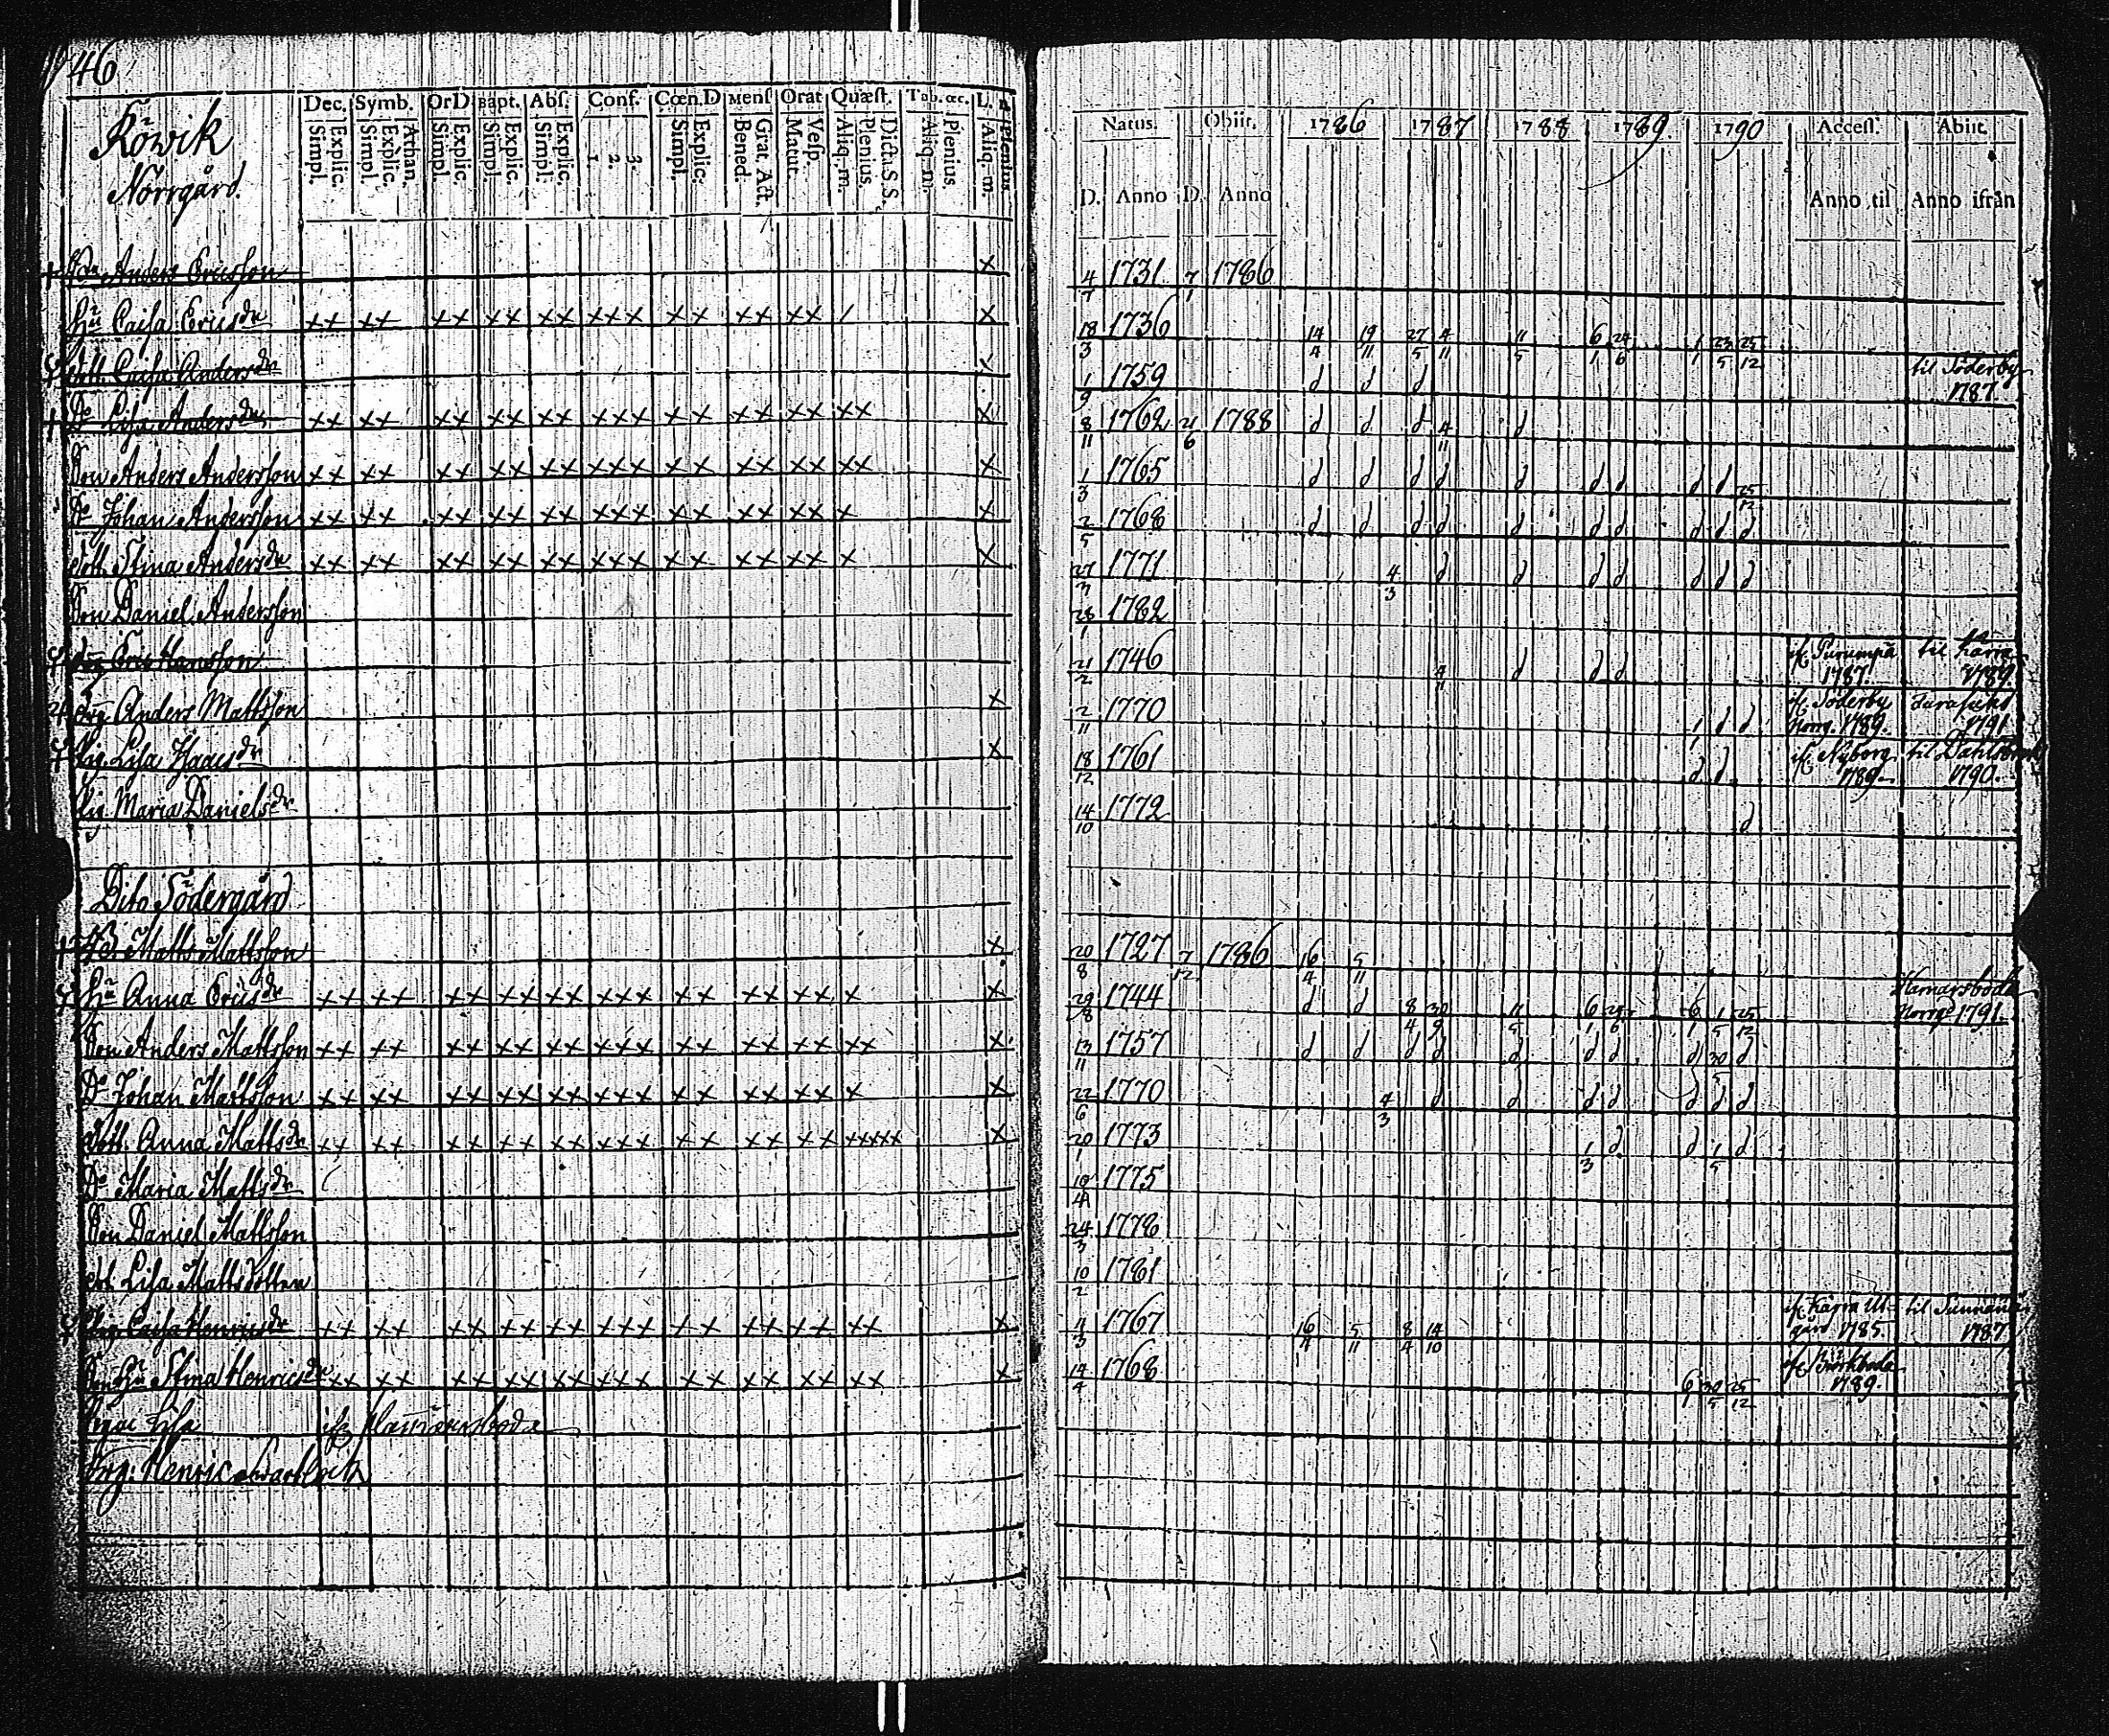 46
Röwik
Norrgård.
Dec. Symb. Or D Bapt. Abs. Conf. Cœn. D Mens Orat Quæst. Tab. œc. L. n.
Simpl. Explic. Simpl. Explic. Athan. Simpl. Explic. Simpl. Explic. Simpl. Explic. 1. 2. 3. Simpl. Explic. Bened. Grat. Act. Matut. Vesp. Aliq. m. Plenius. Dicta S. S. Aliq. m. Plenius Aliq. m. Plenius
Natus. Obiit. 1786 1787 1788 1789 1790 Access. Abiit.
D. Anno D. Anno Anno til Anno ifrån
Anders Ericsson x 4/7 1731 7/1 1786
Hu Caisa Ericsdr xx xx xx xx xx xxx xx xx xx / x 18/3 1736 14/4 19/11 27/5 4/11 11/5 6/1 24/6 1/1 23/5 25/12
dott. Caisa Andersdr x 1/9 1759 d d d til Söderby 1787
Do Lisa Andersdr xx xx xx xx xx xxx xx xx xx xx x 8/11 1762 21/6 1788 d d d 4/11 d
Son Anders Andersson xx xx xx xx xx xxx xx xx xx xx x 1/3 1765 d d d d d d d d d 25/12
Do Johan Andersson xx xx xx xx xx xxx xx xx xx x x 2/5 1768 d d d d d d d d d d
dott. Stina Andersdr xx xx xx xx xx xxx xx xx xx x x 27/7 1771 4/3 d d d d d d d
Son Daniel Andersson 28/1 1782
drg Eric Hansson 21/2 1746 4/11 d d d if. Purumpä 1787. til Kärra 1789
drg Anders Mattsson x 2/11 1770 1/1 d d if. Söderby Norrg. 1789. 1791
Pig. Lisa Isaacsdr x 18/12 1761 d d if. Nyborg 1789 til Dahlsbruk 1790.
Pig. Maria Danielsdr 14/10 1772 d
Dito Södergård
Matts Mattsson x 20/8 1727 7/12 1786 16/4 5/11
Hu Anna Ericsdr xx xx xx xx xx xxx xx xx xx x x 29/8 1744 d d 8/4 30/9 11/5 6/1 24/6 6/1 1/5 25/12 Hamarsboda Norrg. 1791.
Son Anders Mattsson xx xx xx xx xx xxx xx xx xx xx x 13/11 1757 d d d d d d d d 30/5 d
Do Johan Mattsson xx xx xx xx xx xxx xx xx xx x x 22/6 1770 4/3 d d d d d d d
dott. Anna Mattsdr xx xx xx xx xx xxx xx xx xx xxxxx x 20/1 1773 1/3 d d 1/5 d
Do Maria Mattsdr 10/4 1775
Son Daniel Mattsson 24/3 1778
dot Lisa Mattsdotter 10/2 1781
Pig Caisa Henricsdr xx xx xx xx xx xxx xx xx xx xx x 11/3 1767 16/4 5/11 8/4 14/10 if. Kärra Ut-gård 1785. til Sunnanå 1787
Son Hu Stina Henricsdr xx xx xx xx xx xxx xx xx xx xx x 14/4 1768 6/1 30/5 25/12 if. Björkboda 1789.
Pigan Lisa if Hamarsboda
Drg: Henric